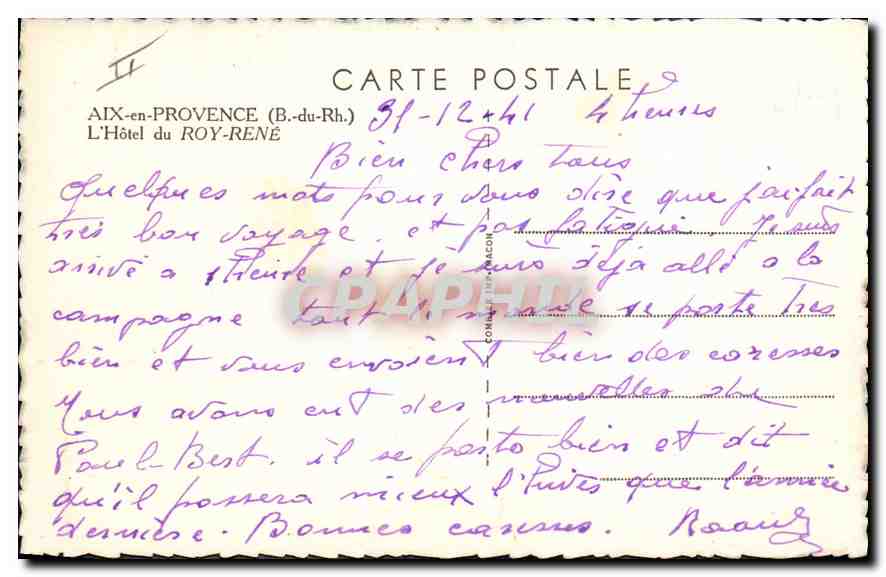 II
CARTE POSTALE
AIX-en-PROVENCE (B.-du-Rh.)
L'Hôtel du ROY-RENÉ
31-12-41 4 heures
Bien chers tous
Quelques mots pour vous dire que j'ai fait
très bon voyage. et pas fatigué. Je suis
arrivé a 1 heure et je suis déja allé a la
campagne tout le monde se porte très
bien et vous envoient bien des caresses
Nous avons eut des nouvelles du
Paul-Bert. il se porte bien et dit
qu'il passera mieux l'hiver que l'année
dernière. Bonnes caresses. Raoul
COMBIER IMP. MACON
CPAPHIL